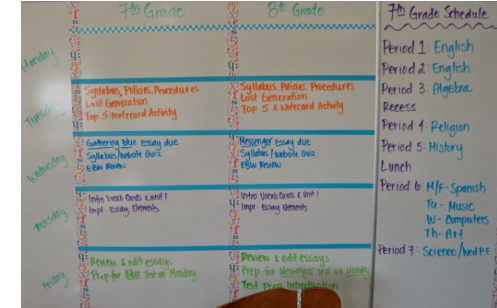 7th Grade
8th Grade
Monday
Tuesday
Syllabus, Policies, Procedures
Lost Generation
Top 5 Notecard Activity
Syllabus, Policies, Procedures
Lost Generation
Top 5 & Notecard Activity
Wednesday
Gathering Blue essay due
Syllabus/Website Quiz
EBW Review
Messenger essay due
Syllabus/Website Quiz
EBW Review
Thursday
Intro Vocab Cards & Unit 1
Impt. Essay Elements
Intro Vocab Cards & Unit 1
Impt. Essay Elements
Friday
Review & edit essays
Prep for EBW Test on Monday
Review & edit essays
Prep for Messenger test on Monday
Test Prep Introduction
7th Grade Schedule
Period 1: English
Period 2: English
Period 3: Algebra
Recess
Period 4: Religion
Period 5: History
Lunch
Period 6: M/F- Spanish
Tu- Music
W- Computers
Th- Art
Period 7: Science/Wed P.E.